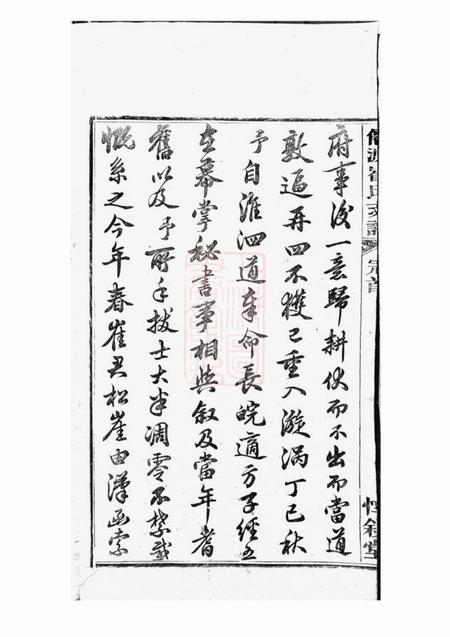 崔氏支譜
宗譜
惇敘堂
府事後一意歸耕伏而不出而當道
敦逼再四不獲已重入漩渦丁巳秋
予自淮泗道奉命長皖適方子經五
在幕掌祕書事相與敘及當年耆
舊以及予所手拔士大半凋零不禁感
慨系之今年春崔君松崖由漢函索